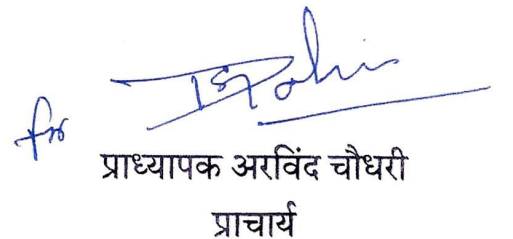 for
प्राध्यापक अरविंद चौधरी
प्राचार्य